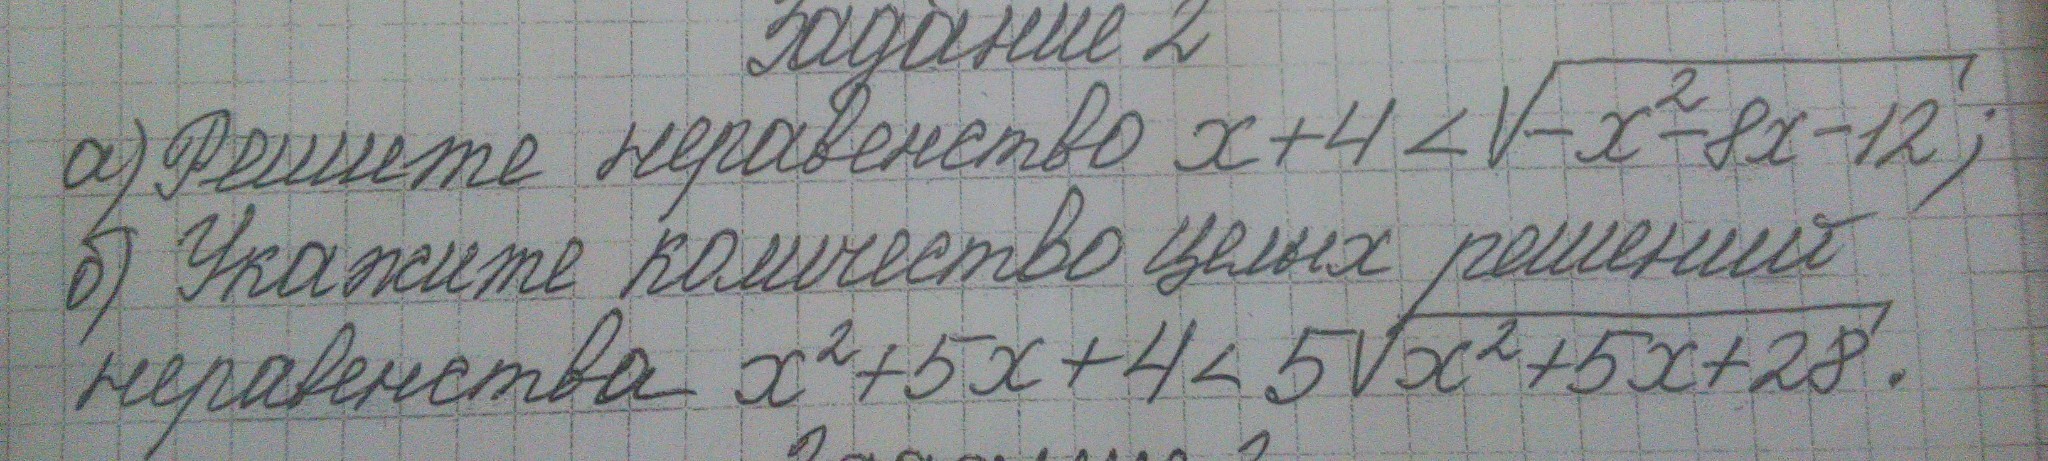 Задание 2
а) Решите неравенство x+4<√(-x²-8x-12);
б) Укажите количество целых решений
неравенства x²+5x+4<5√(x²+5x+28).